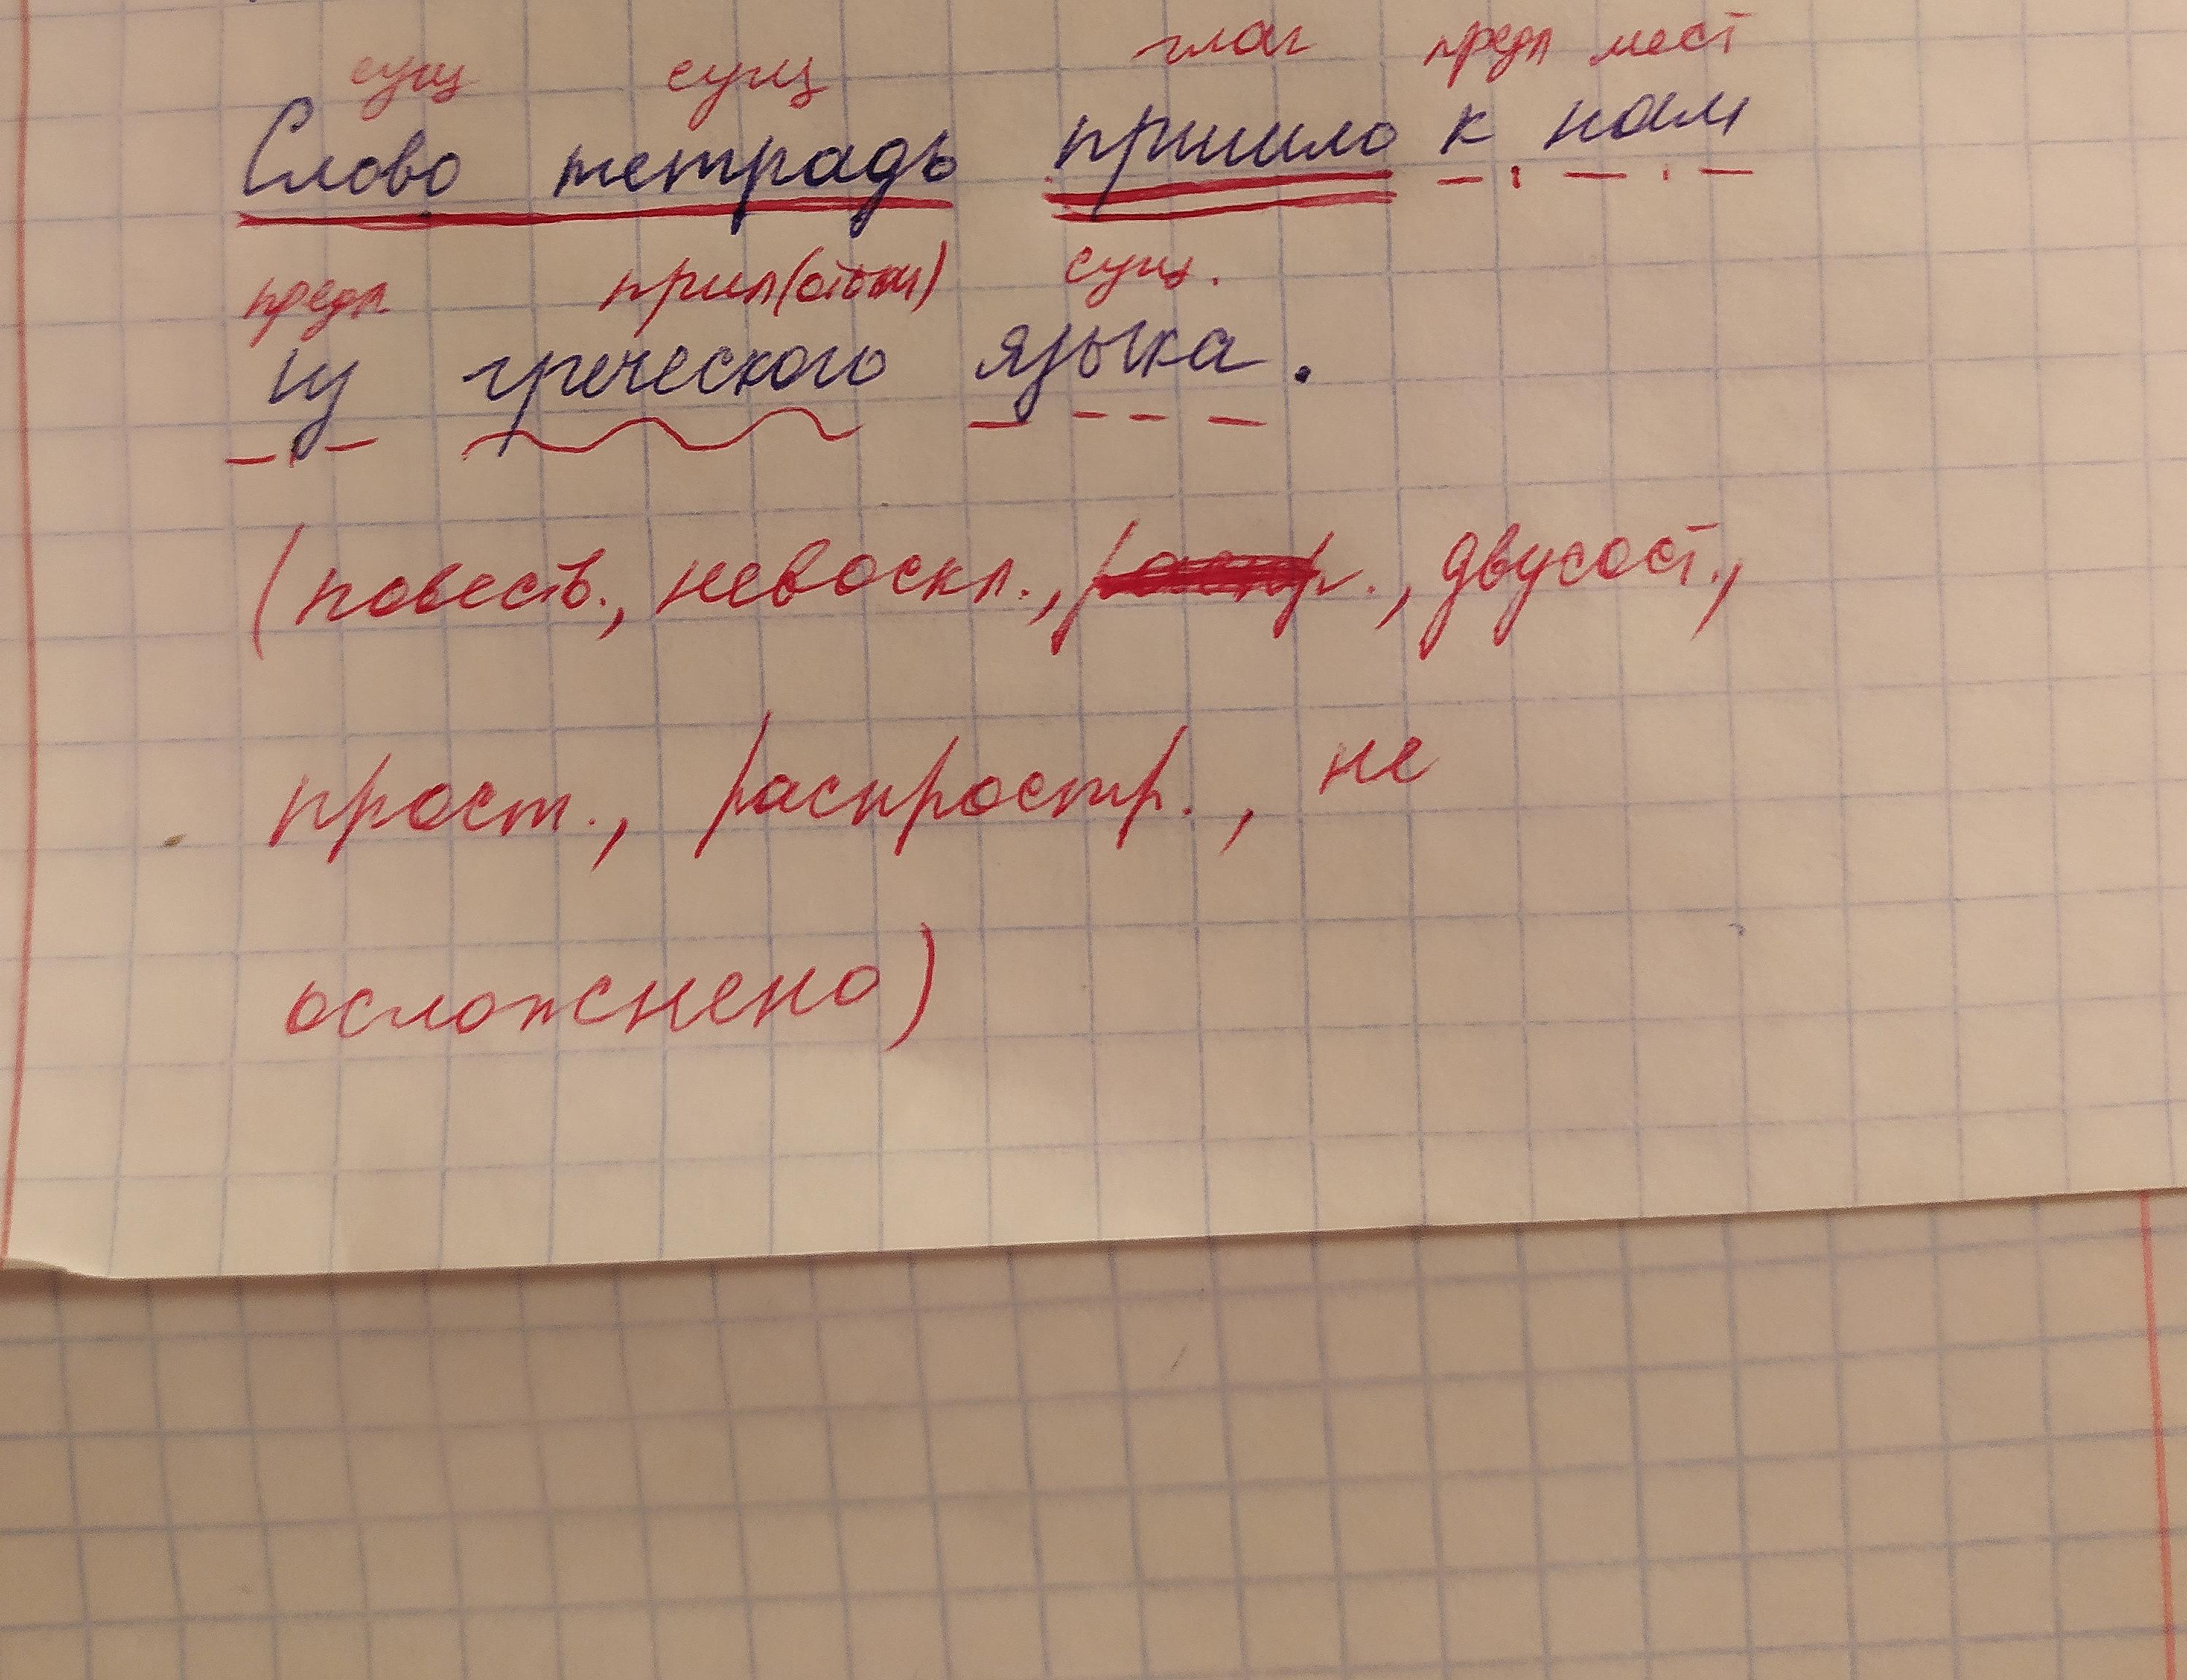 сущ сущ глаг предл мест
Слово тетрадь пришло к нам
предл. прил сущ.
из греческого языка.
(повеств., невоскл., двусост.,
прост., распростр., не
осложнено)